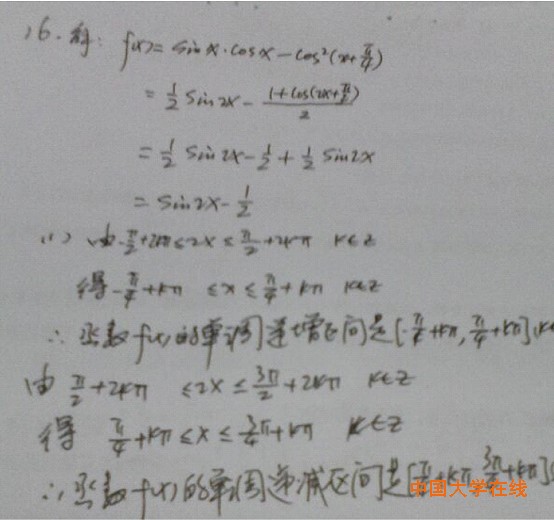 16. 解: f(x)= sin x·cos x - cos²(x+π/4)
= 1/2 sin 2x - (1+cos(2x+π/2))/2
= 1/2 sin 2x - 1/2 + 1/2 sin2x
= sin2x - 1/2
(1) 由 -π/2+2kπ ≤ 2x ≤ π/2+2kπ k∈Z
得 -π/4+kπ ≤ x ≤ π/4+kπ k∈Z
∴ 函数f(x)的单调递增区间是[-π/4+kπ, π/4+kπ](k∈
由 π/2+2kπ ≤2x≤ 3π/2+2kπ k∈Z
得 π/4+kπ ≤x≤ 3/4π+kπ k∈Z
∴ 函数f(x)的单调递减区间是[π/4+kπ, 3π/4+kπ](
中国大学在线